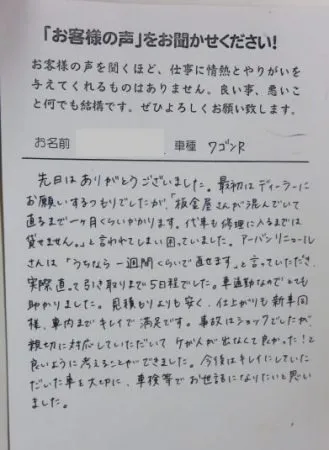 「お客様の声」をお聞かせください!
お客様の声を聞くほど、仕事に情熱とやりがいを
与えてくれるものはありません。良い事、悪いこ
と何でも結構です。ぜひよろしくお願い致します。
お名前 車種 ワゴンR
先日はありがとうございました。最初はディーラーに
お願いするつもりでしたが、「板金屋さんが混んでいて
直るまで一ヶ月くらいかかります。代車も修理に入るまでは
貸せません。」と言われてしまい困っていました。アーバンリニュール
さんは「うちなら一週間くらいで直せます」と言っていただき、
実際直って引き取りまで5日程でした。車通勤なのでとても
助かりました。見積もりよりも安く、仕上がりも新車同
様、車内までキレイで満足です。事故はショックでしたが、
親切に対応していただいてケガ人が出なくて良かった!と
良いように考えることができました。今後はキレイにしていた
だいた車を大切に、車検等でお世話になりたいと思い
ました。